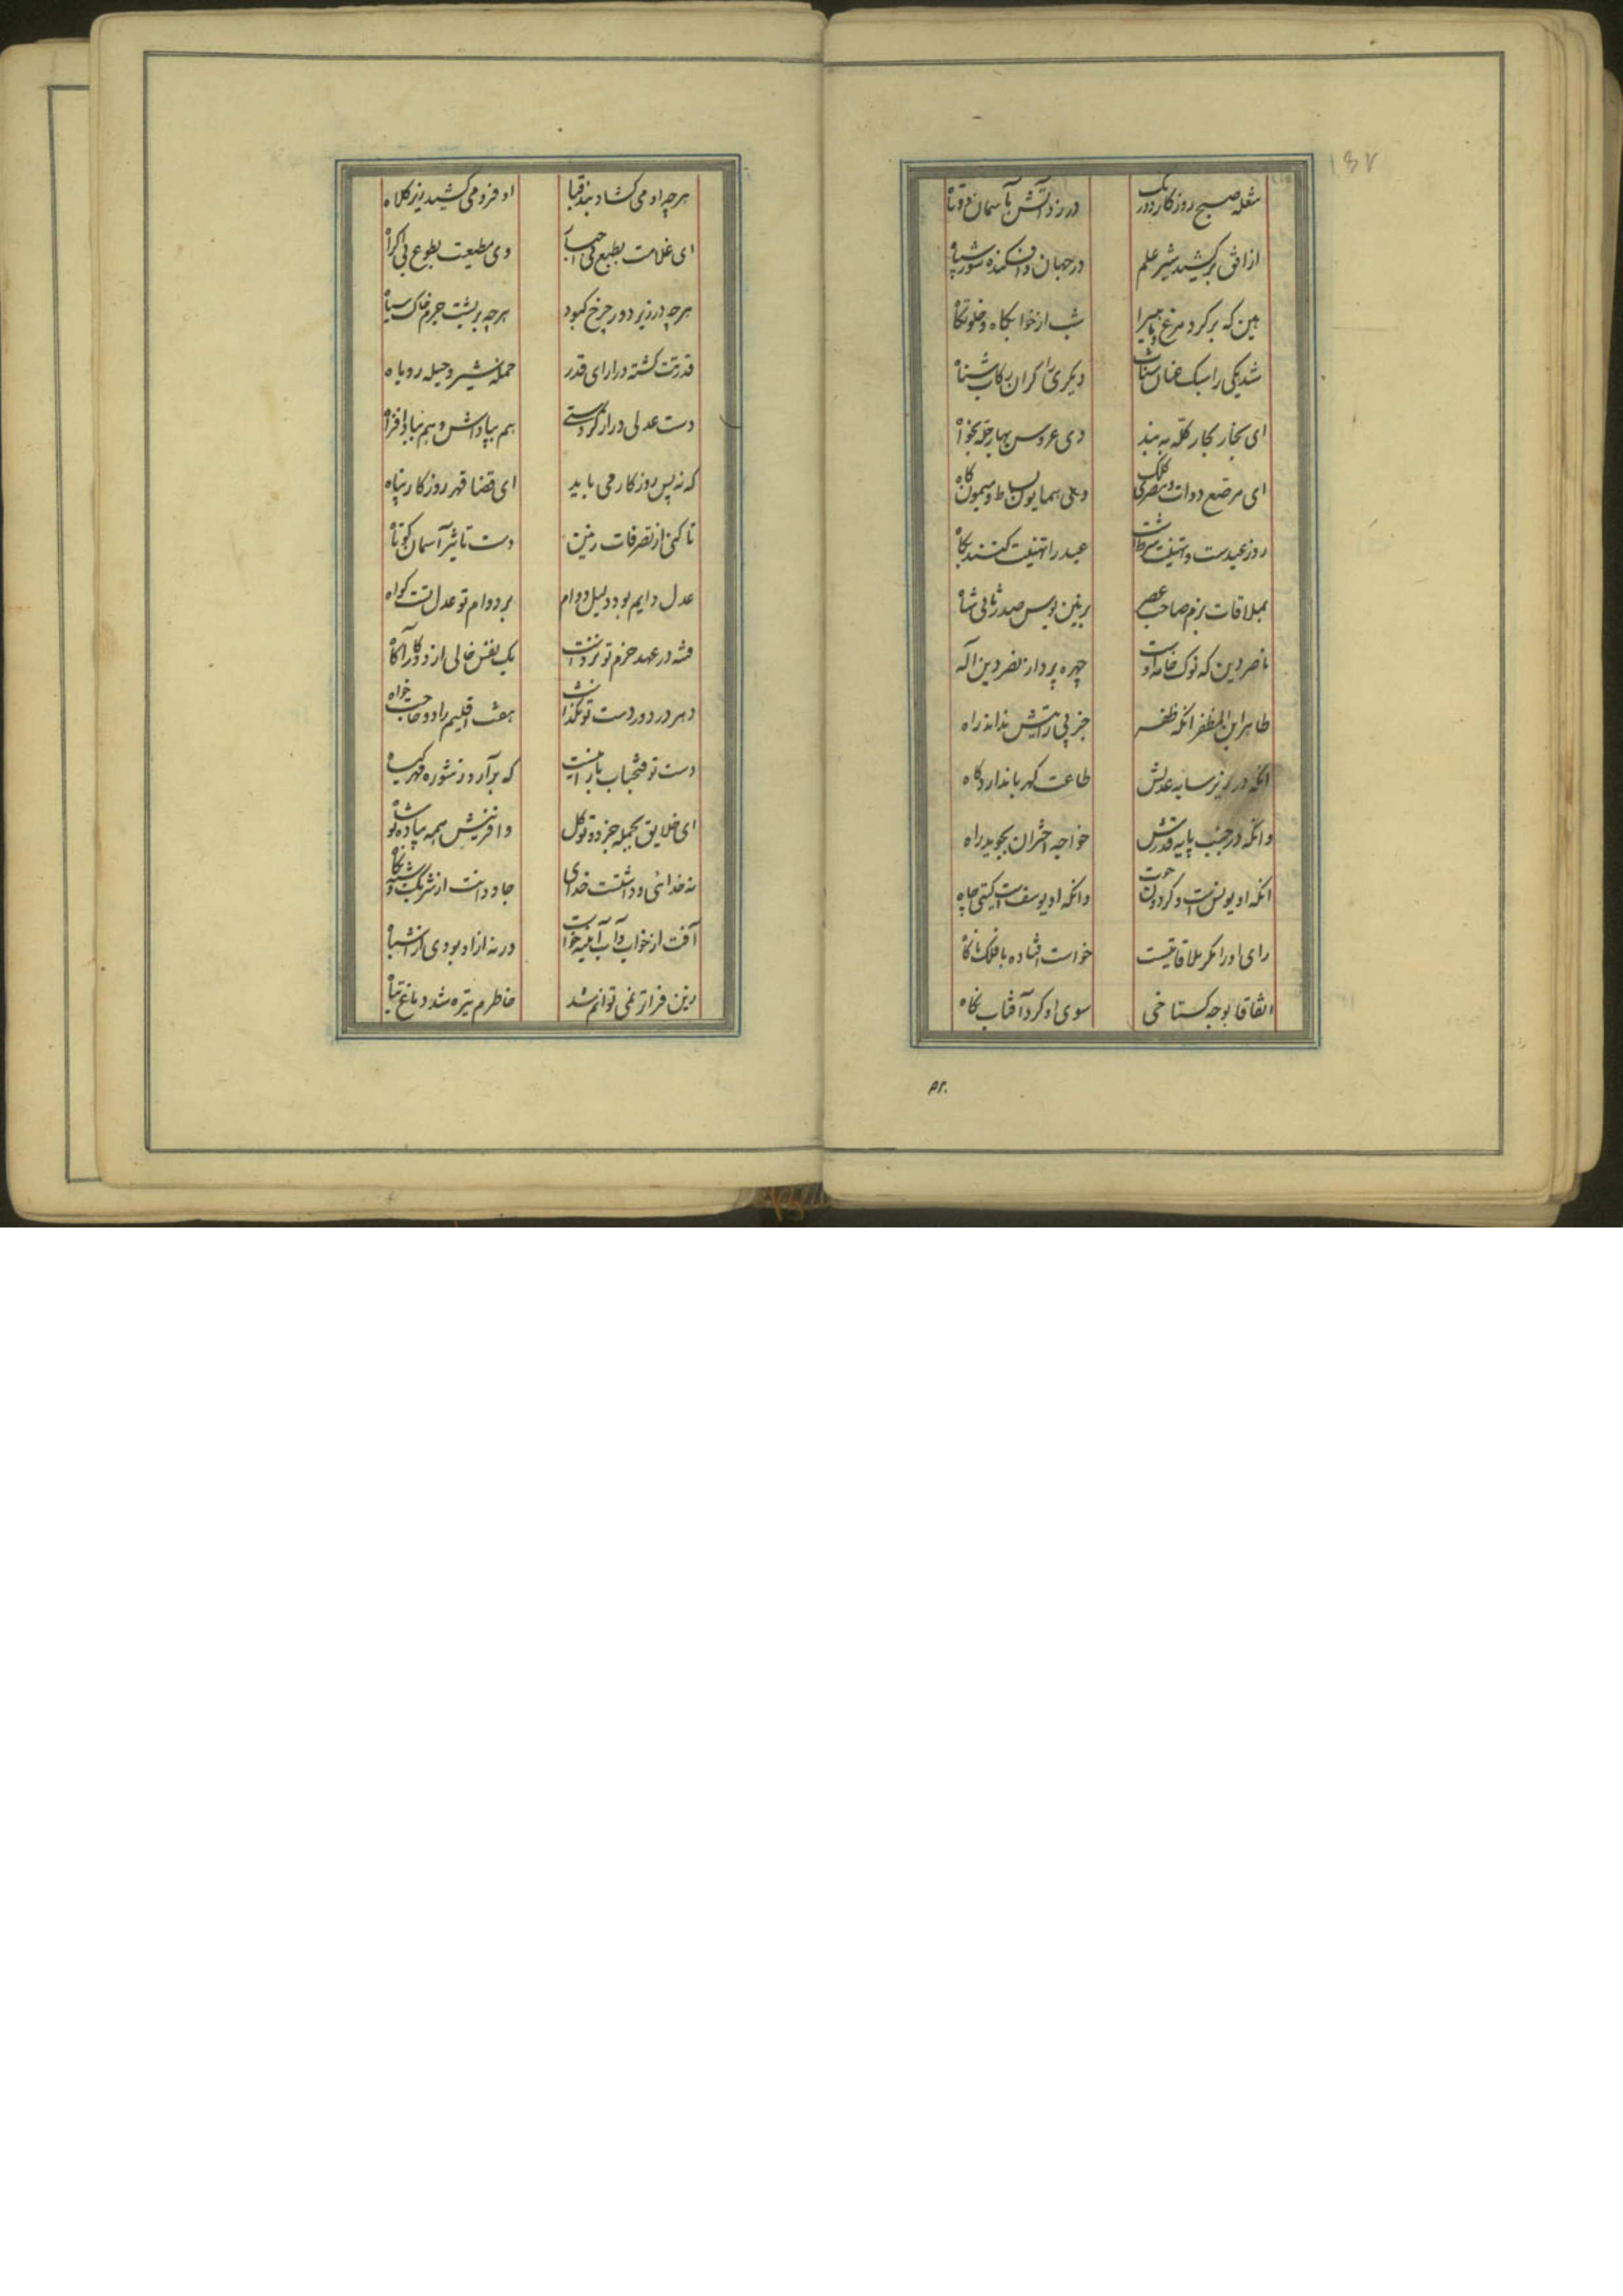 ۱۳۷
شعله صبح روزگار دورنگ
در زد آتش بآسمان دوتاه
از افق برکشید شیر علم
در جهان اوفکنده شور سپاه
هین که برکرد مرغ و ماهی را
شب از خوابگاه و خلوتگاه
شد یکی را سبک عنان شتاب
دیگری را گران رکاب شناه
ای بخار بحار کله به بند
وی عروس بهار حله بخواه
ای مرصع دوات و مصری کلک
وی همایون بساط و میمون گاه
روز عیدست و تهنیت شرطست
عید را تهنیت کنند بگاه
بملاقات بزم صاحب عصر
بزمین بوس صدر ثانی شاه
ناصر دین که نوک خامه اوست
چهره پرداز نصر دین اله
طاهر ابن المظفر انکه ظفر
جز پی رایتش نداند راه
انکه در زیر سایه عدلش
طاعت کهربا ندارد کاه
وانکه در جنب پایه قدرش
خواجه اختران بجوید راه
انکه او یونس است و گردون حوت
وانکه او یوسف است گیتی چاه
رای او را مگر ملاقاتیست
خواست افتاده با فلک ناگاه
اتفاقا بوجه گستاخی
سوی او کرد آفتاب نگاه
هرچه او می کشاد بند قبا
او فرو می کشید زیر کلاه
ای غلامت بطبع بی اجبار
وی مطیعت بطوع بی اکراه
هرچه در زیر دور چرخ کبود
هرچه بر پشت جرم خاک سیاه
قدرتت گشته در ازای قدر
حمله شیر و حیله روباه
دست عدلی دراز کردستی
هم بپاداش و هم بباد افراه
که نه پس روزگار می باید
ای قضا قهر روزگار پناه
تا کنی از تصرفات زمین
دست تاثیر آسمان کوتاه
عدل دایم بود دلیل دوام
بر دوام تو عدل تست گواه
فتنه در عهد حزم تو نزدست
یک نفس خالی از دو کار آگاه
دهر در دور دست تو نگذاشت
هفت اقلیم را دو حاجت خواه
دست تو فتحباب بارانیست
که برآرد ز شوره مهر گیاه
ای خلایق بجمله جزو و تو کل
وافرینش همه پیاده تو شاه
نه خدائی و داشتست خدای
جاودانت از شریک و شبه نگاه
آفت از خواب و آب آینه خواست
ورنه آزاد بودی از اشباه
زین فراتر نمی توانم شد
خاطرم تیره شد دماغ تباه